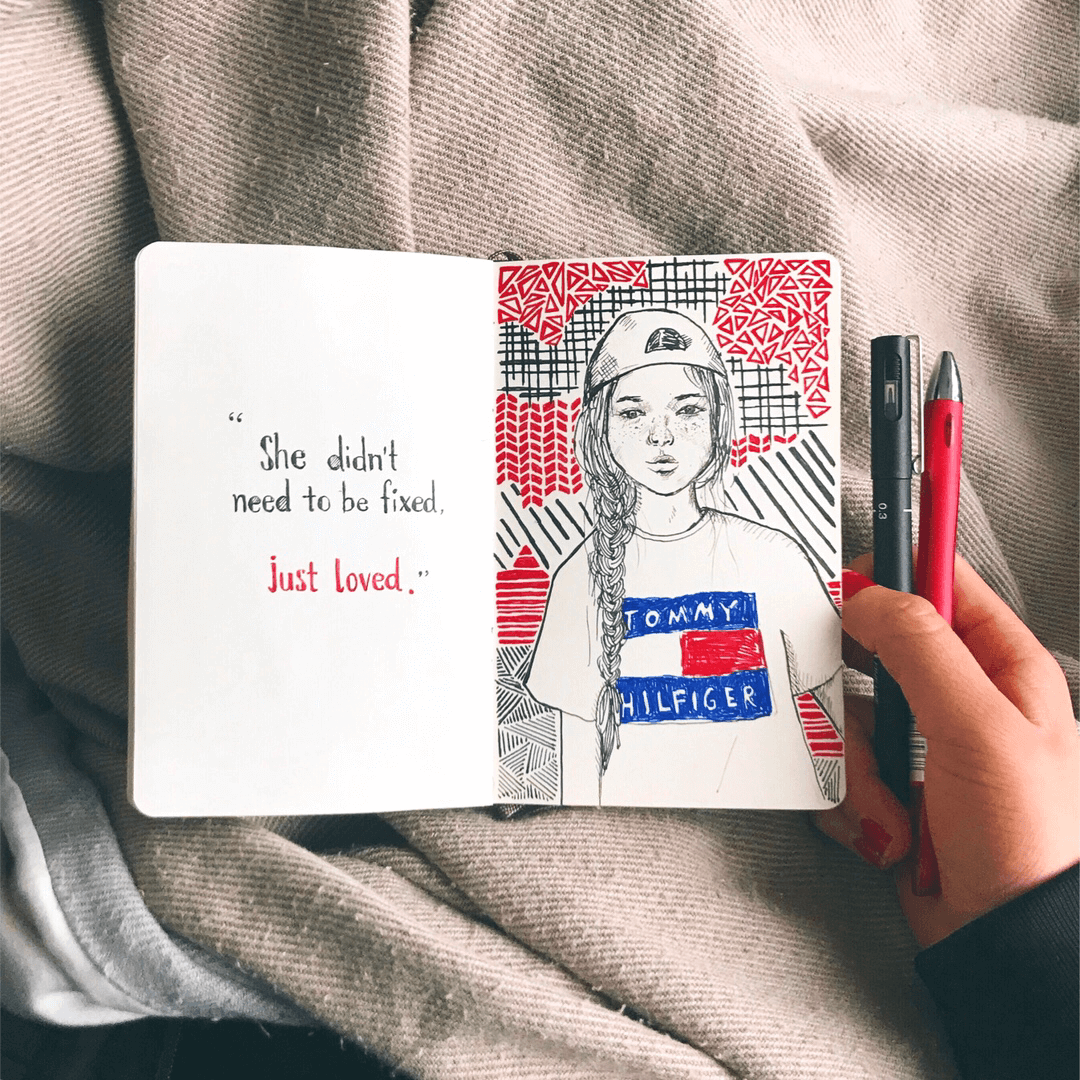 “
She didn't
need to be fixed,
just loved.”
TOMMY
HILFIGER
0.3